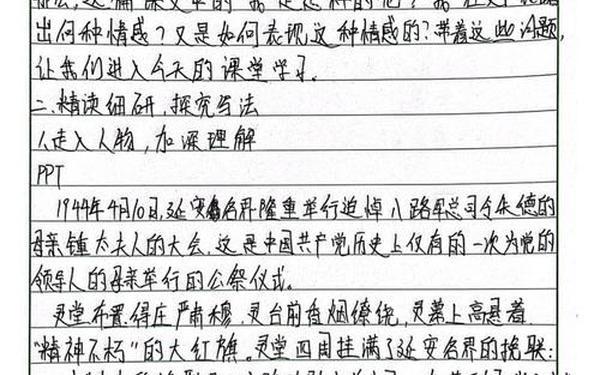 这篇课文中的"我"是怎样的
出何种情感?又是如何表现这种情感的?带着这些问题,
让我们进入今天的课堂学习。
二、精读细研,探究写法
1.走入人物,加深理解
PPT
1944年4月10日,延安各界隆重举行追悼八路军总司令朱德的
母亲锺太夫人的大会,这是中国共产党历史上仅有的一次为党的
领导人的母亲举行的公祭仪式。
灵堂布置得庄严肃穆,灵台前香烟缭绕,灵幕上高悬着
"精神不朽"的大红旗。灵堂四周挂满了延安各界的挽联: